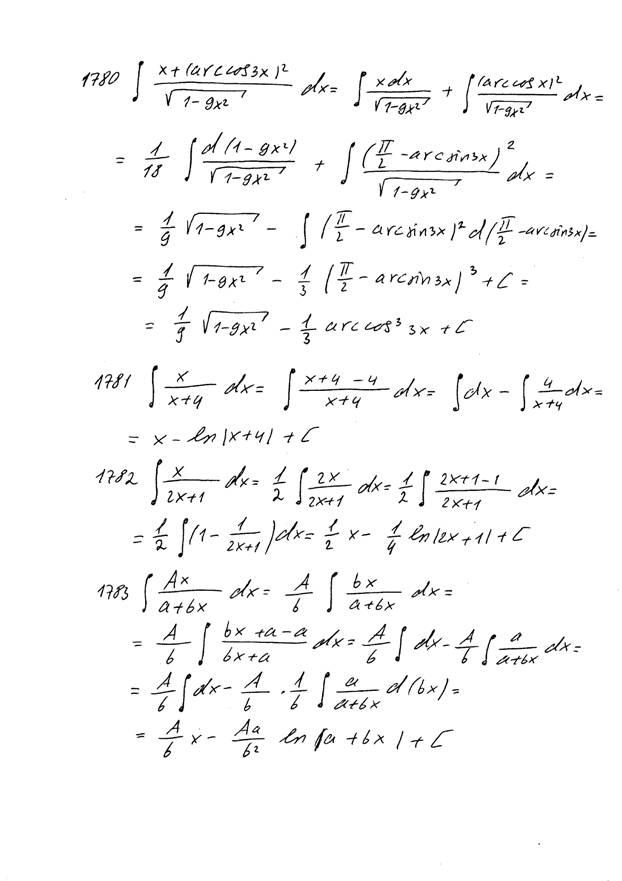 1780 ∫ (x+(arccos3x)²)/√(1-9x²) dx = ∫ xdx/√(1-9x²) + ∫ (arccosx)²/√(1-9x²) dx =
= 1/18 ∫ d(1-9x²)/√(1-9x²) + ∫ (π/2 - arcsin3x)²/√(1-9x²) dx =
= 1/9 √(1-9x²) - ∫ (π/2 - arcsin3x)² d(π/2 - arcsin3x) =
= 1/9 √(1-9x²) - 1/3 (π/2 - arcsin3x)³ + C =
= 1/9 √(1-9x²) - 1/3 arccos³ 3x + C
1781 ∫ x/(x+4) dx = ∫ (x+4-4)/(x+4) dx = ∫ dx - ∫ 4/(x+4) dx =
= x - ln|x+4| + C
1782 ∫ x/(2x+1) dx = 1/2 ∫ 2x/(2x+1) dx = 1/2 ∫ (2x+1-1)/(2x+1) dx =
= 1/2 ∫ (1 - 1/(2x+1)) dx = 1/2 x - 1/4 ln|2x+1| + C
1783 ∫ Ax/(a+bx) dx = A/b ∫ bx/(a+bx) dx =
= A/b ∫ (bx+a-a)/(bx+a) dx = A/b ∫ dx - A/b ∫ a/(a+bx) dx =
= A/b ∫ dx - A/b · 1/b ∫ a/(a+bx) d(bx) =
= A/b x - Aa/b² ln|a+bx| + C